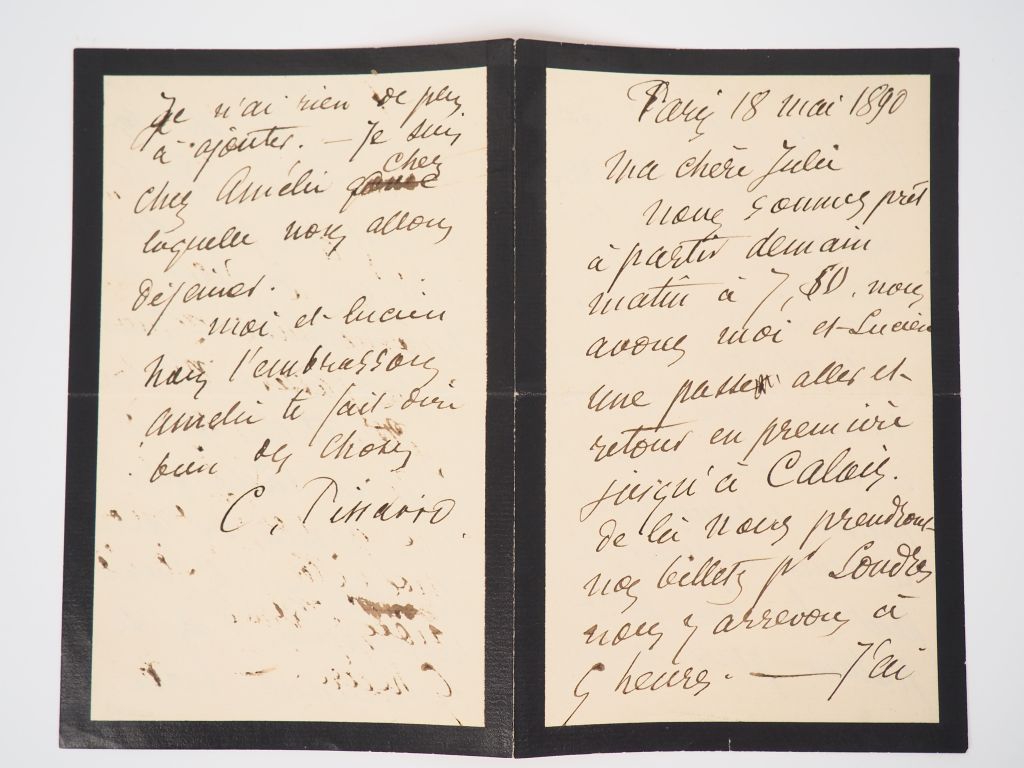 Paris 18 mai 1890
Ma chère Julie
nous sommes prêt
à partir demain
matin à 7,50. nous
avons moi et Lucien
une passe aller et
retour en première
jusqu'à Calais.
de là nous prendrons
nos billets pr Londres
nous y arrevons à
5 heures. — J'ai
Je n'ai rien de peu
à ajouter. — Je suis
chez Amélie chez
laquelle nous allons
déjeuner.
moi et Lucien
nous t'embrassons
Amélie te fait dire
bien des choses
C. Pissarro